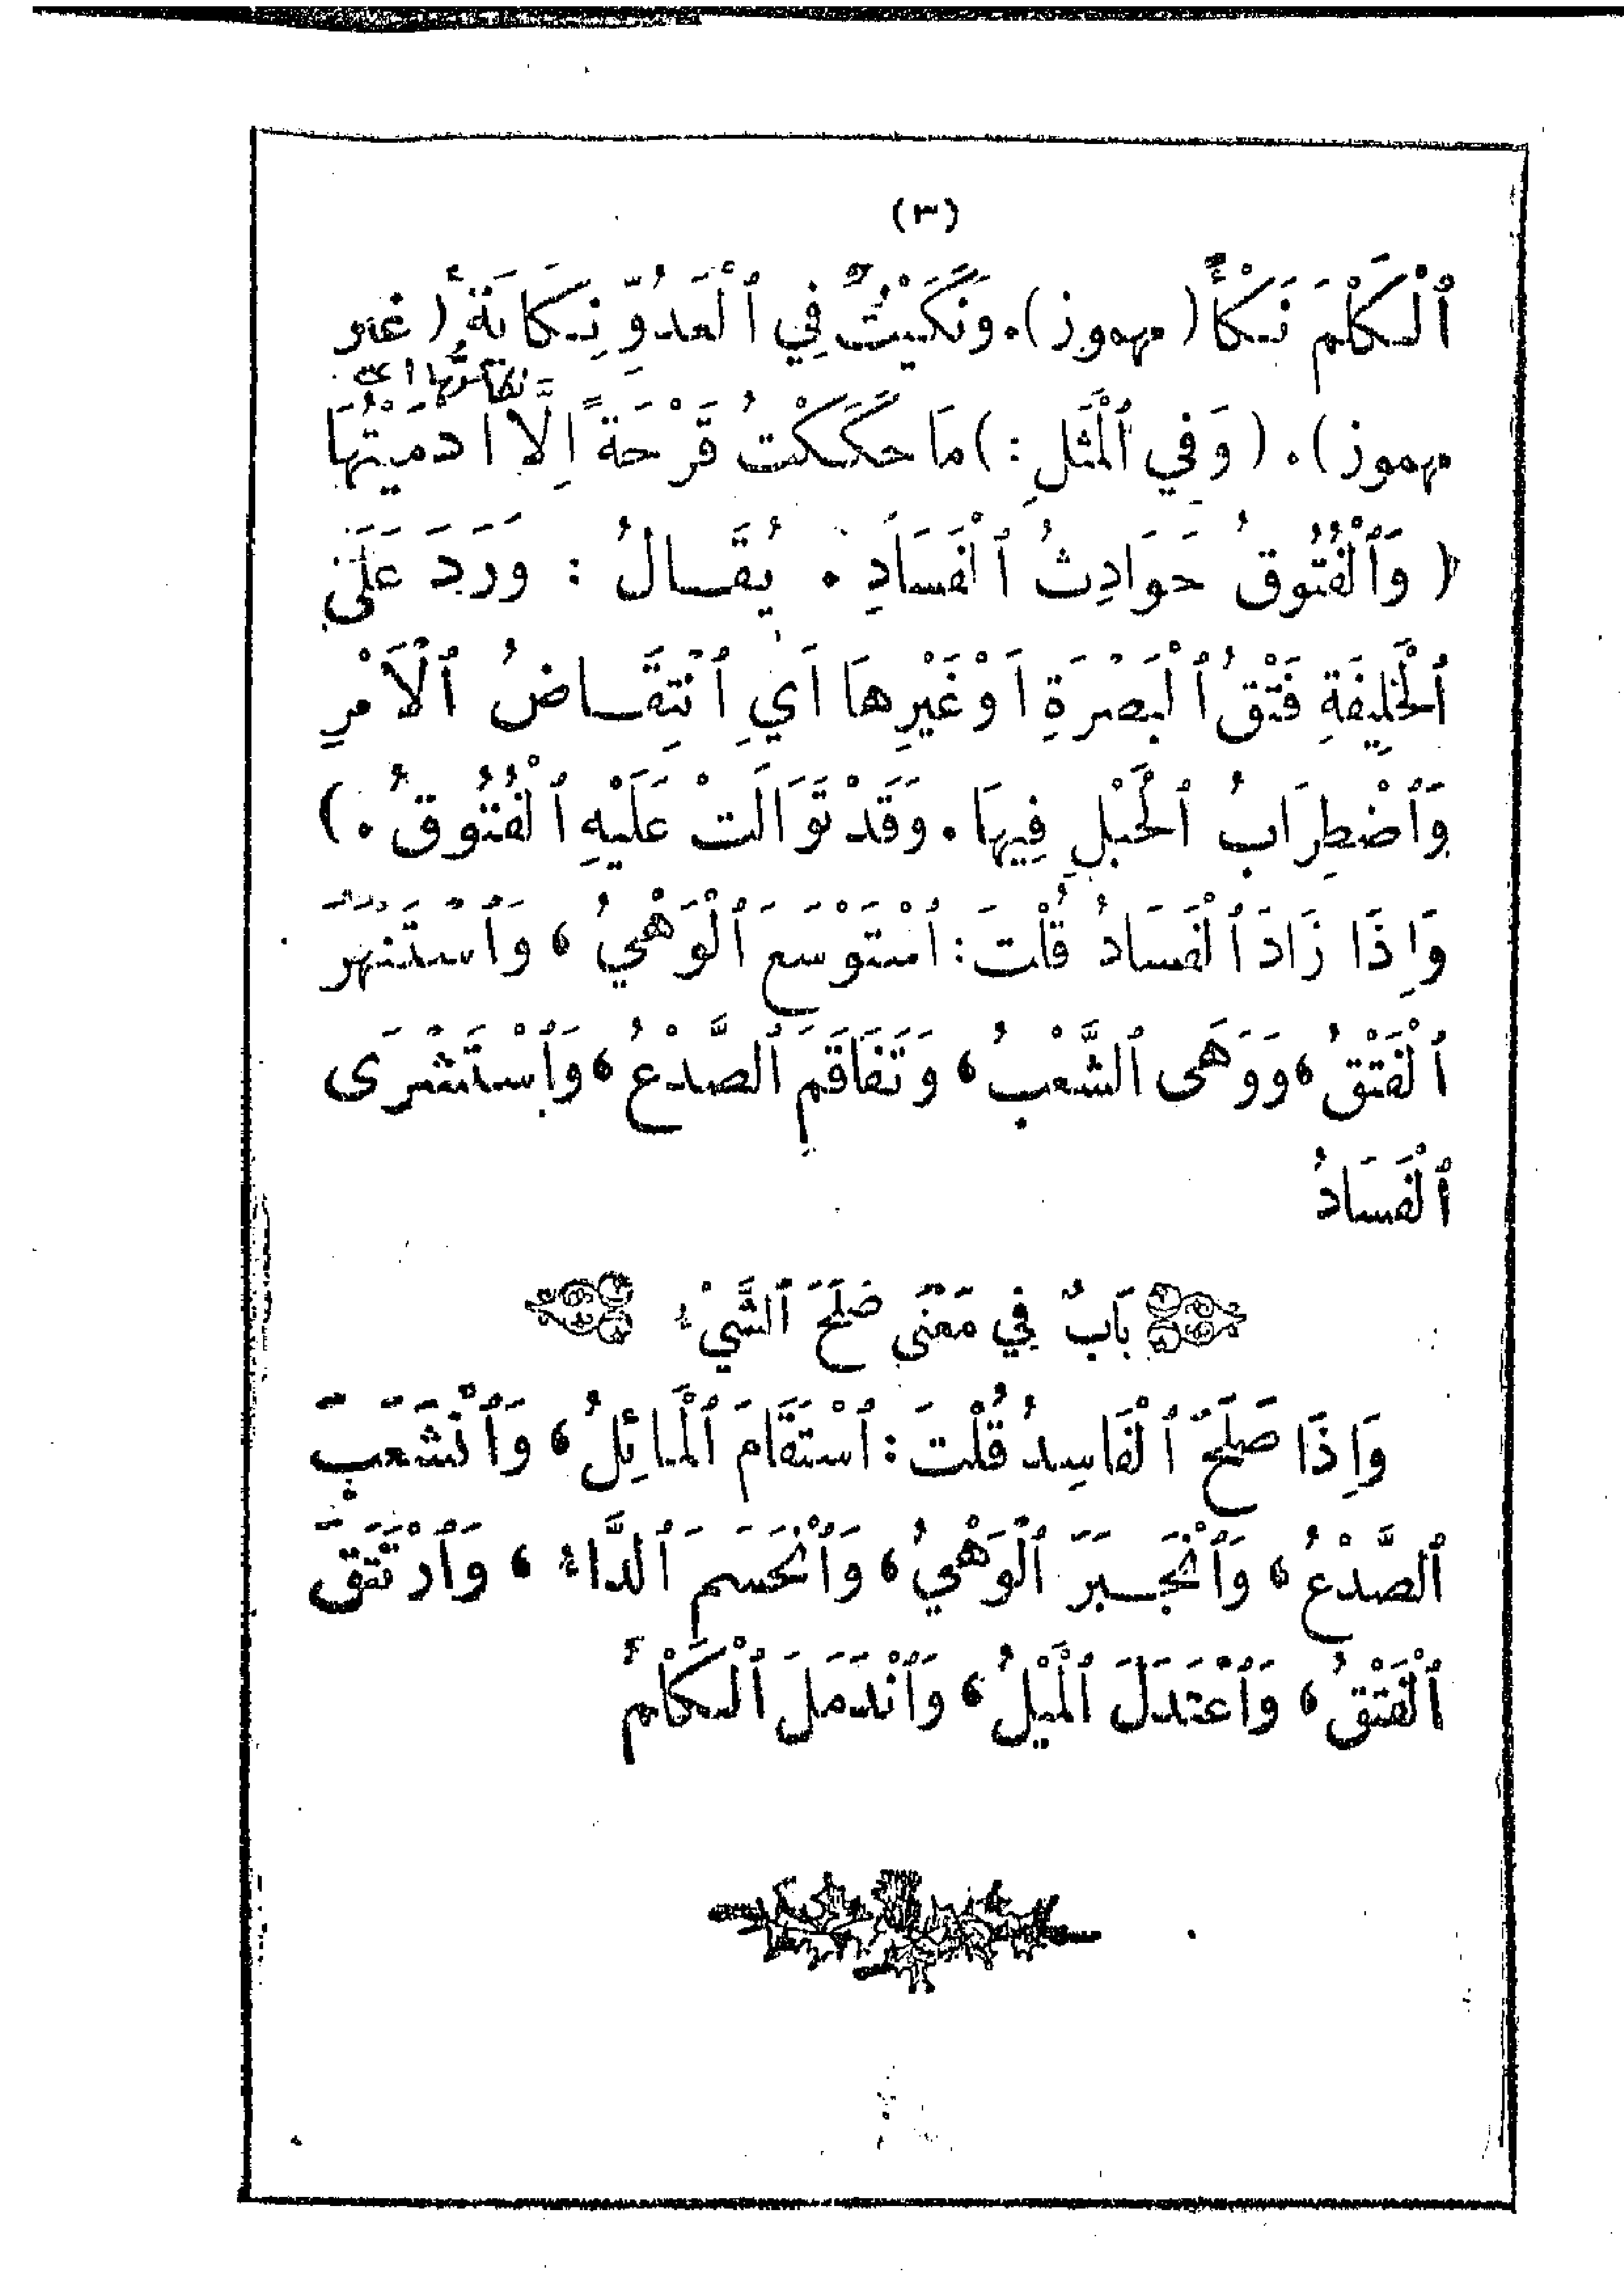 (٣)
ٱلْكَلْمَ نَكْأً (مهموز). وَنَكَيْتُ فِي ٱلْعَدُوِّ نِكَايَةً (غير
مهموز). (وَفِي ٱلْمَثَلِ:) مَا حَكَكْتُ قَرْحَةً اِلَّا اَدْمَيْتُهَا
(وَٱلْفُتُوقُ حَوَادِثُ ٱلْفَسَادِ. يُقَالُ: وَرَدَ عَلَى
ٱلْخَلِيفَةِ فَتْقُ ٱلْبَصْرَةِ اَوْ غَيْرِهَا اَيِ ٱنْتِقَاضُ ٱلْاَمْرِ
وَٱضْطِرَابُ ٱلْحَبْلِ فِيهَا. وَقَدْ تَوَالَتْ عَلَيْهِ ٱلْفُتُوقُ.)
وَاِذَا زَادَ ٱلْفَسَادُ قُلْتَ: ٱسْتَوْسَعَ ٱلْوَهْيُ، وَٱسْتَنْهَرَ
ٱلْفَتْقُ، وَوَهَى ٱلشَّعْبُ، وَتَفَاقَمَ ٱلصَّدْعُ، وَٱسْتَشْرَى
ٱلْفَسَادُ
بَابٌ فِي مَعْنَى صَلَحَ ٱلشَّيْءُ
وَاِذَا صَلَحَ ٱلْفَاسِدُ قُلْتَ: ٱسْتَقَامَ ٱلْمَائِلُ، وَٱنْشَعَبَ
ٱلصَّدْعُ، وَٱنْجَبَرَ ٱلْوَهْيُ، وَٱنْحَسَمَ ٱلدَّاءُ، وَٱرْتَتَقَ
ٱلْفَتْقُ، وَٱعْتَدَلَ ٱلْمَيْلُ، وَٱنْدَمَلَ ٱلْكَلْمُ